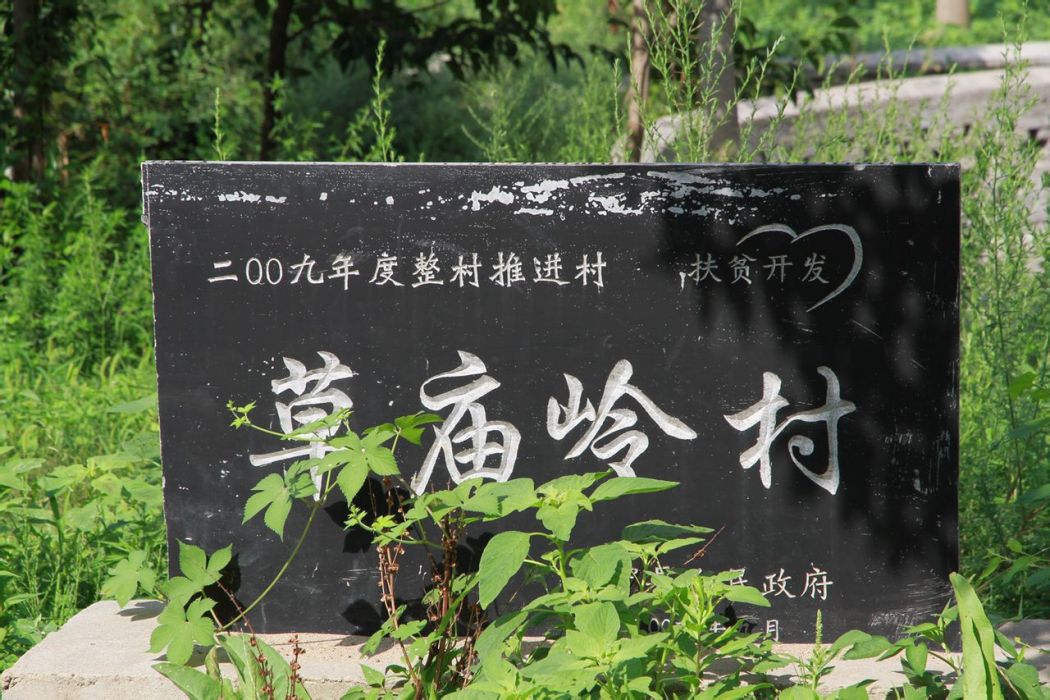 二00九年度整村推进村 扶贫开发
草庙岭村
政府
月